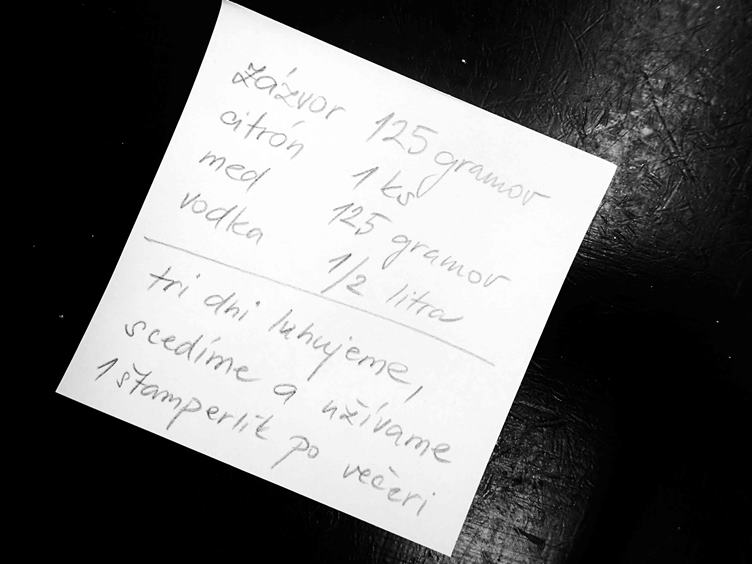 zázvor 125 gramov
citrón 1 ks
med 125 gramov
vodka 1/2 litra
tri dni luhujeme,
scedíme a užívame
1 štamperlík po večeri